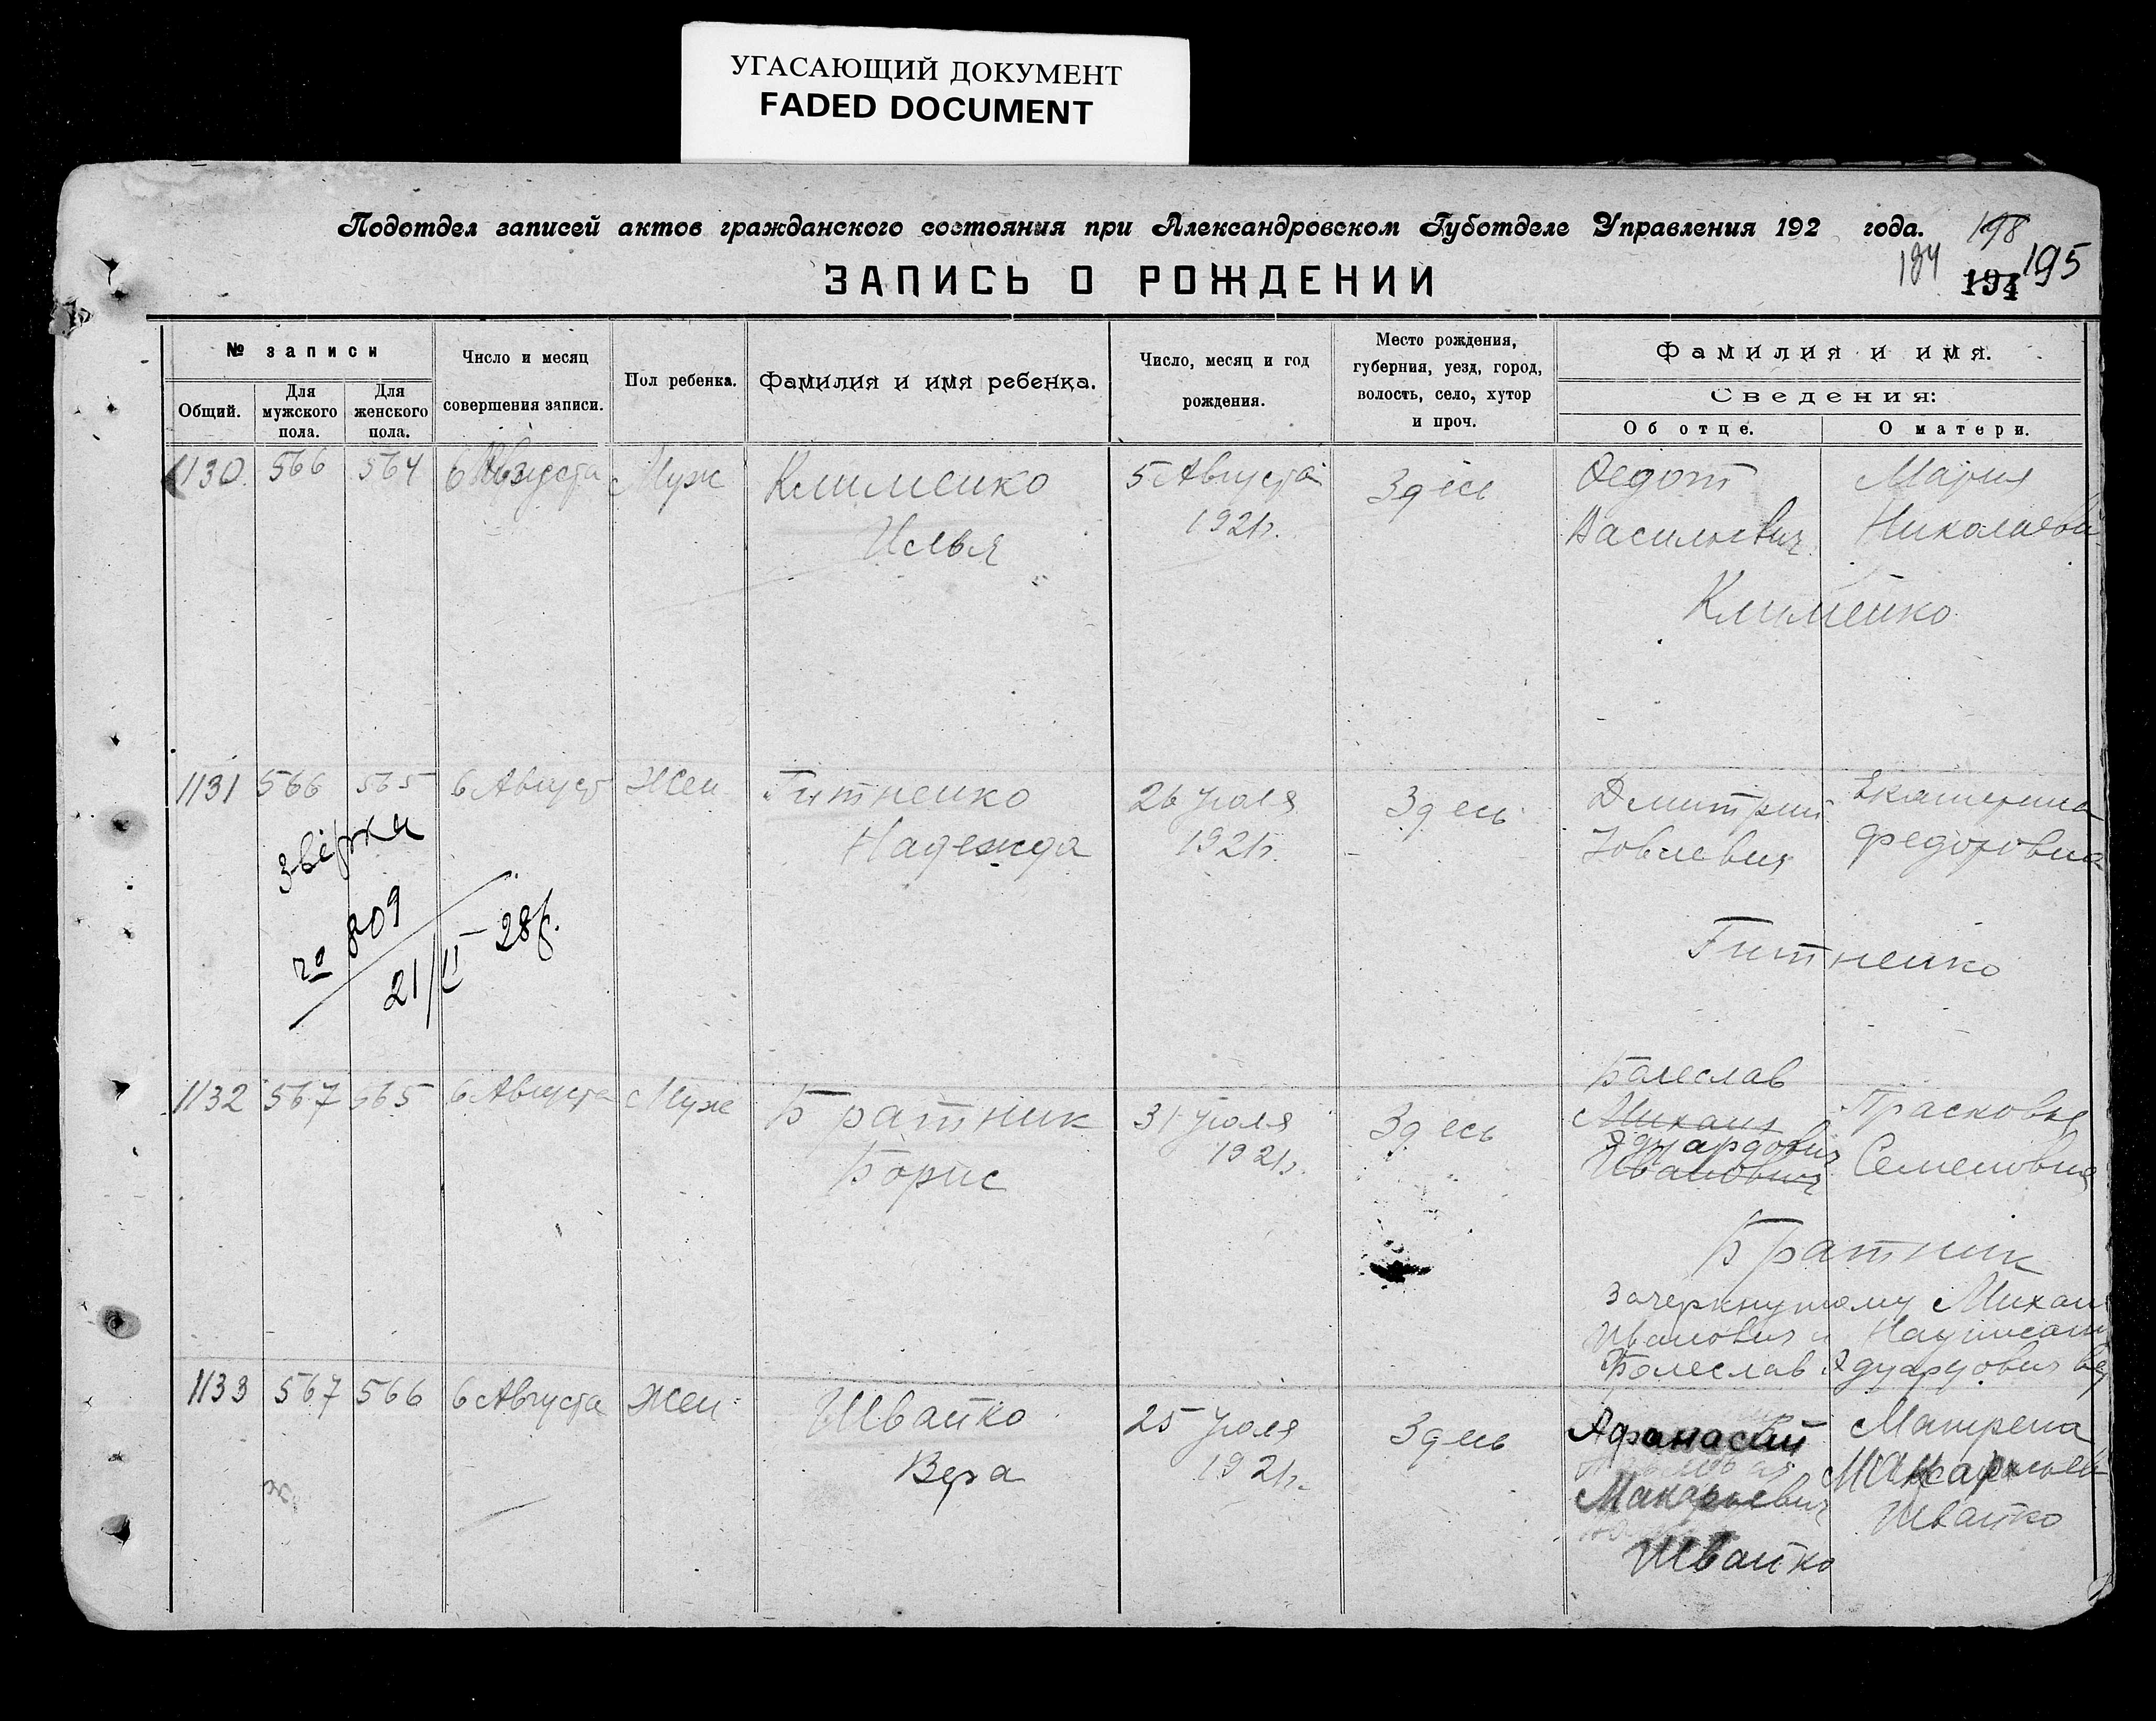 УГАСАЮЩИЙ ДОКУМЕНТ
FADED DOCUMENT
Подотдел записей актов гражданского состояния при Александровском Губотделе Управления 192 года.
198
194 194 195
ЗАПИСЬ О РОЖДЕНИИ
№ записи
Общий.
Для мужского пола.
Для женского пола.
Число и месяц совершения записи.
Пол ребенка.
Фамилия и имя ребенка.
Число, месяц и год рождения.
Место рождения, губерния, уезд, город, волость, село, хутор и проч.
Фамилия и имя.
Сведения:
Об отце.
О матери.
1130 566 564 6 Августа Муж Клименко 5 Августа Здесь Федот Мария
Илья 1921г. Васильевич Николаевн
Клименко
1131 566 565 6 Август Жен Гитненко 26 Июля Здесь Дмитрий Екатерина
Надежда 1921г. Иовлевич Федоровна
Звірка
№ 809
21/II-28р.
Гитненко
1132 567 565 6 Августа Муж Братник 31 Июля Здесь Болеслав Прасковья
Борис 1921г. Михаил
Эдуардович
Иванович Семеновна
Братник
Зачеркнутому Михаил
Иванович и Написан
Болеслав Эдуардович
1133 567 566 6 Августа Жен Швайко 25 Июля Здесь Афанасий Матрена
Вера 1921г. Макарьевич
Швайко
Швайко